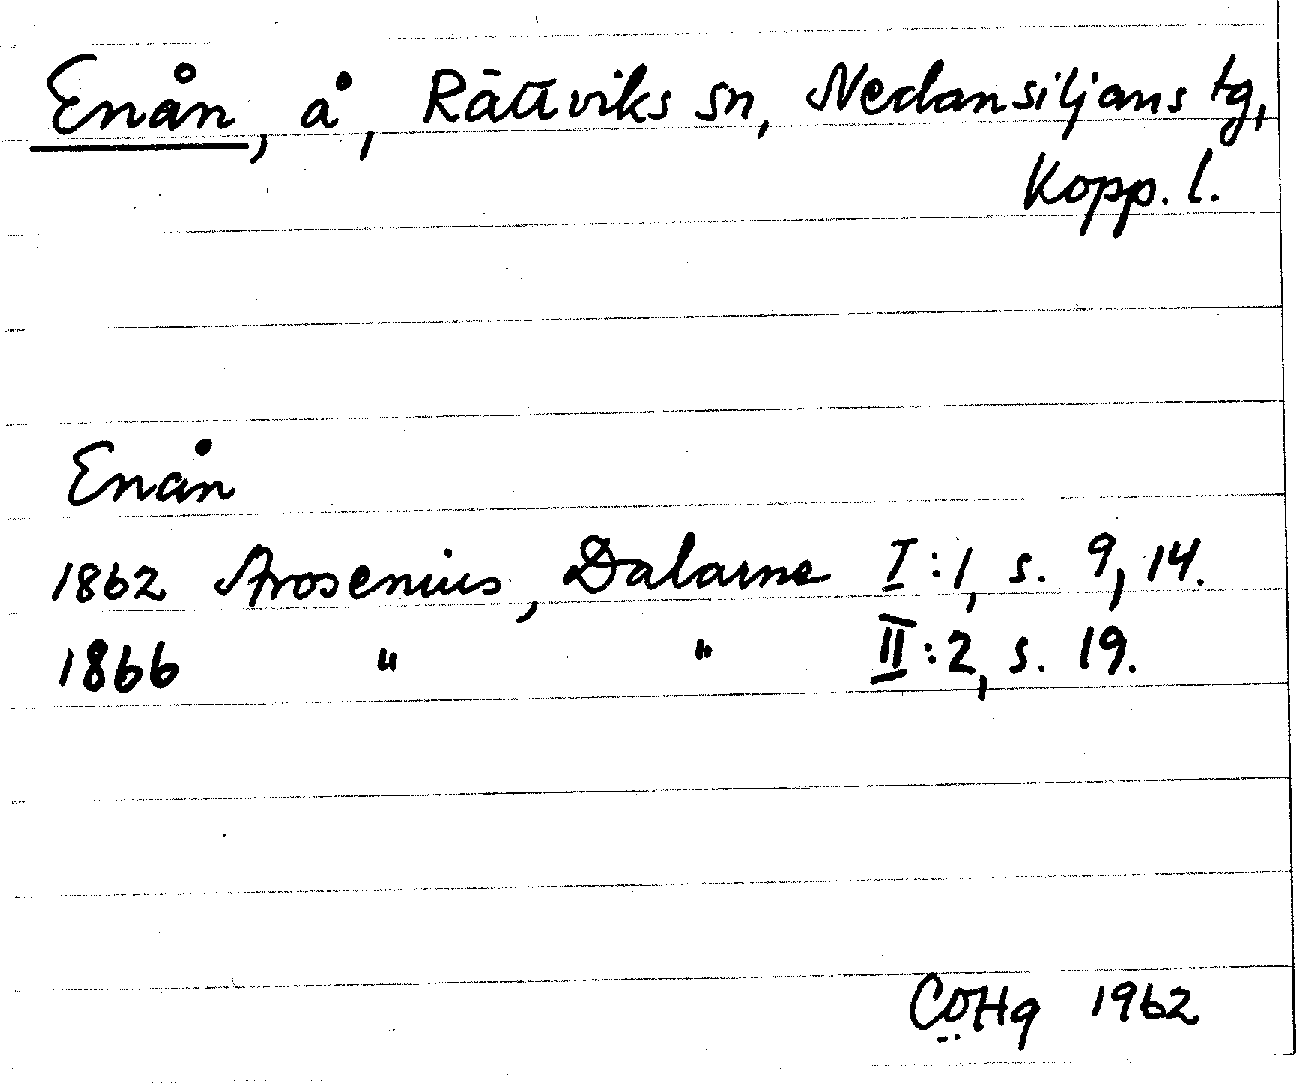 Enån, å, Rättviks sn, Nedansiljans tg,
Kopp. l.
Enån
1862 Arosenius, Dalarne I:1, s. 9, 14.
1866 " " II:2, s. 19.
COHg 1962